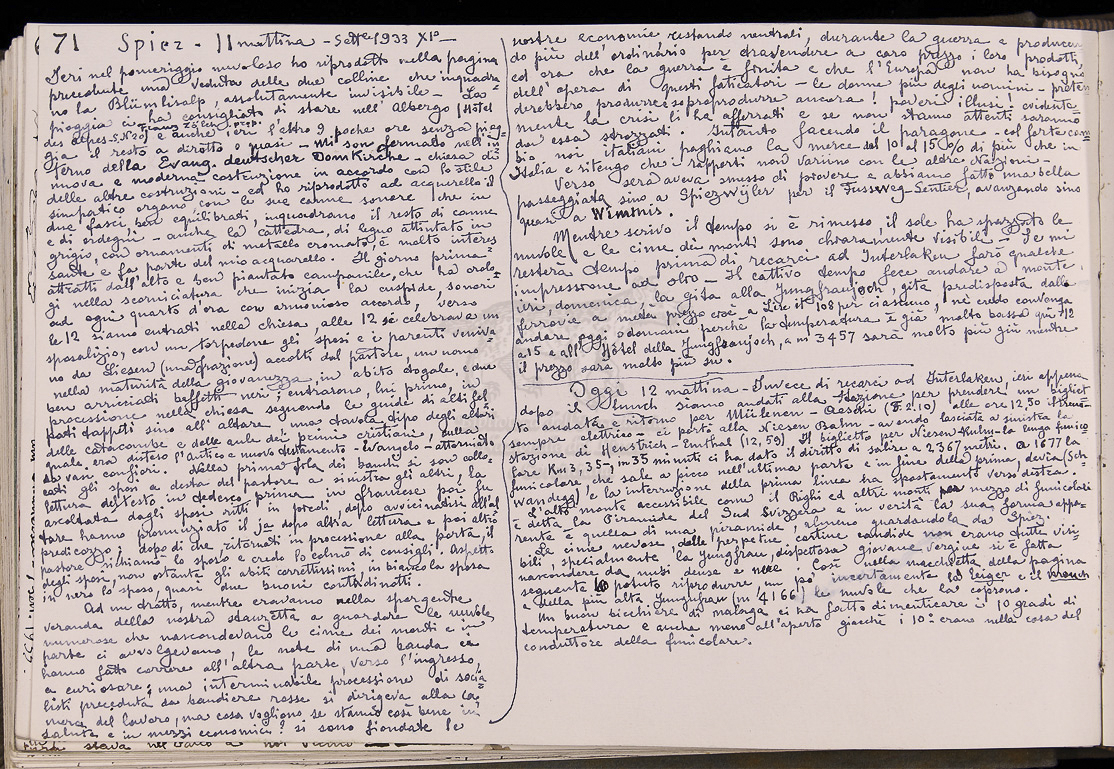 71 Spiez - 11 mattina - Sett.e 1933 XI°
Ieri nel pomeriggio nuvoloso ho riprodotto nella pagina
precedente una veduta delle due colline che inquadra
no la Blümlisalp, assolutamente invisibile - La
pioggia ci ha consigliato di stare nell'Albergo (Hôtel
des Alpes
e anche ieri l'altro 9 poche ore senza piog=
gia il resto a dirotto o quasi - Mi son fermato nell'in=
terno della Evang. deutscher Dom Kirche - chiesa di
nuova e moderna costruzione in accordo con lo stile
delle altre costruzioni - ed ho riprodotto ad acquerello il
simpatico organo con le sue canne sonore che in
due fasci, ben equilibrati, inquadrano il resto di canne
e di ordegni - anche la cattedra, di legno attintato in
grigio, con ornamenti di metallo cromato, è molto interes
sante e fa parte del mio acquarello. Il giorno prima
attratti dall'alto e ben piantato campanile, che ha orolo=
gi nella scorniciatura che inizia la cuspide, sonori
ad ogni quarto d'ora con armonioso accordo, verso
le 12 siamo entrati nella chiesa, alle 12 si celebrava un
sposalizio, con un torpedone gli sposi e i parenti veniva
no da (una frazione) accolti dal pastore, un uomo
nella maturità della giovanezza, in abito togale, e due
ben arricciati baffetti neri; entrarono lui primo, in
processione nella chiesa seguendo le guide di alti fel
pati tappeti sino all'altare una tavola tipo degli altari
delle catacombe e delle aule dei primi cristiani, sulla
quale, era disteso l'Antico e nuovo testamento - Evangelo attorniato
da vari confiori. Nella prima fola dei banchi si son collo=
cati gli sposi a destra del pastore a sinistra gli altri, la
lettura del testo in tedesco prima, in francese poi fu
ascoltata dagli sposi ritti in piedi, dopo avvicinatisi all'al
tare hanno pronunziato il ja dopo altra lettura e poi altro
predicozzo, dopo di che, ritornati in processione alla porta, il
pastore richiamò lo sposo e credo lo colmò di consigli. Aspetto
degli sposi, non ostante gli abiti correttissimi, in bianco la sposa
in nero lo sposo, quasi due buoni contadinotti.
Ad un tratto, mentre eravamo nella sporgente
veranda della nostra stanzetta a guardare le nuvole
numerose che nascondevano le cime dei monti e in
parte ci avvolgevano, le note di una banda ci
hanno fatto correre all'altra parte, verso l'ingresso,
a curiosare; una interminabile processione di socia=
listi preceduta da bandiere rosse si dirigeva alla ca
mera del lavoro, ma cosa vogliono se stanno così bene in
salute e in mezzi economici? si sono fiondate le
nostre economie restando neutrali, durante la guerra e producen
do più dell'ordinario per rivendere a caro prezzo i loro prodotti,
ed ora che la guerra è finita e che l'Europa non ha bisogno
dell'opera di questi faticatori - le donne più degli uomini - preten
derebbero produrre e soproprodurre ancora! poveri illusi! evidente
mente la crisi li ha afferrati e se non stanno attenti saranno
da essa strozzati. Intanto facendo il paragone - col forte cam
bio noi italiani paghiamo la merce dal 10 al 15% di più che in
Italia e ritengo che i rapporti non varino con le altre Nazioni -
Verso sera aveva smesso di piovere e abbiamo fatto una bella
passeggiata sino a Spiezwyler per il Fussweg-Sentier, avanzando sino
quasi a Wimmis.
Mentre scrivo il tempo si è rimesso, il sole ha spazzato le
nuvole e le cime dei monti sono chiaramente visibili - Se mi
resterà tempo prima di recarci ad Interlaken farò qualche
impressione ad olio - Il cattivo tempo fece andare a monte,
ieri domenica, la gita alla Jungfraujoch, gita predisposta dalla
ferrovia a mezzo prezzo cioè a Lire it. 108 per ciascuno, nè credo convenga
andare oggi o domani perchè la temperatura è già molto bassa qui 12
a 15 e all'Hôtel della Jungfraujoch, a m 3457 sarà molto più giù mentre
il prezzo sarà molto più su.
Oggi 12 mattina - Invece di recarci ad Interlaken, ieri appena
dopo il lunch siamo andati alla stazione per prendere i bigliet
ti andata e ritorno per Mülenen - Aeschi (F. 2.10) alle ore 12,50 il treno
sempre elettrico ci portò alla Niesen Bahn - avendo lasciata a sinistra la
stazione di Heustrich - Emthal (12,59) Il biglietto per Niesen Kulm - la lunga funico
lare Km 3,35 - in 35 minuti ci ha dato il diritto di salire a 2367 metri. A 1677 la
funicolare che sale a picco nell'ultima parte e in fine della prima, devia (Sch
wandegg) e la interruzione della prima linea ha spostamento verso destra.
L'alto monte accessibile come il Righi ed altri monti per mezzo di funicolari
è detta la Piramide del Sud Svizzera e in verità la sua forma appa=
rente è quella di una piramide, almeno guardandola da Spiez.
Le cime nevose, delle perpetue, cortine candide non erano tutte visi
bili, specialmente la Jungfrau, dispettosa giovane vergine si è fatta
nascondere da nubi dense e nere. Così nella macchietta della pagina
seguente ho potuto riprodurre, un po' incertamente la Eiger e il Mönch
e della più alta Jungfrau (m 4166) le nuvole che la coprono.
Un buon bicchiere di malaga ci ha fatto dimenticare i 10 gradi di
temperatura e anche meno all'aperto giacchè i 10° erano nella casa del
conduttore della funicolare.